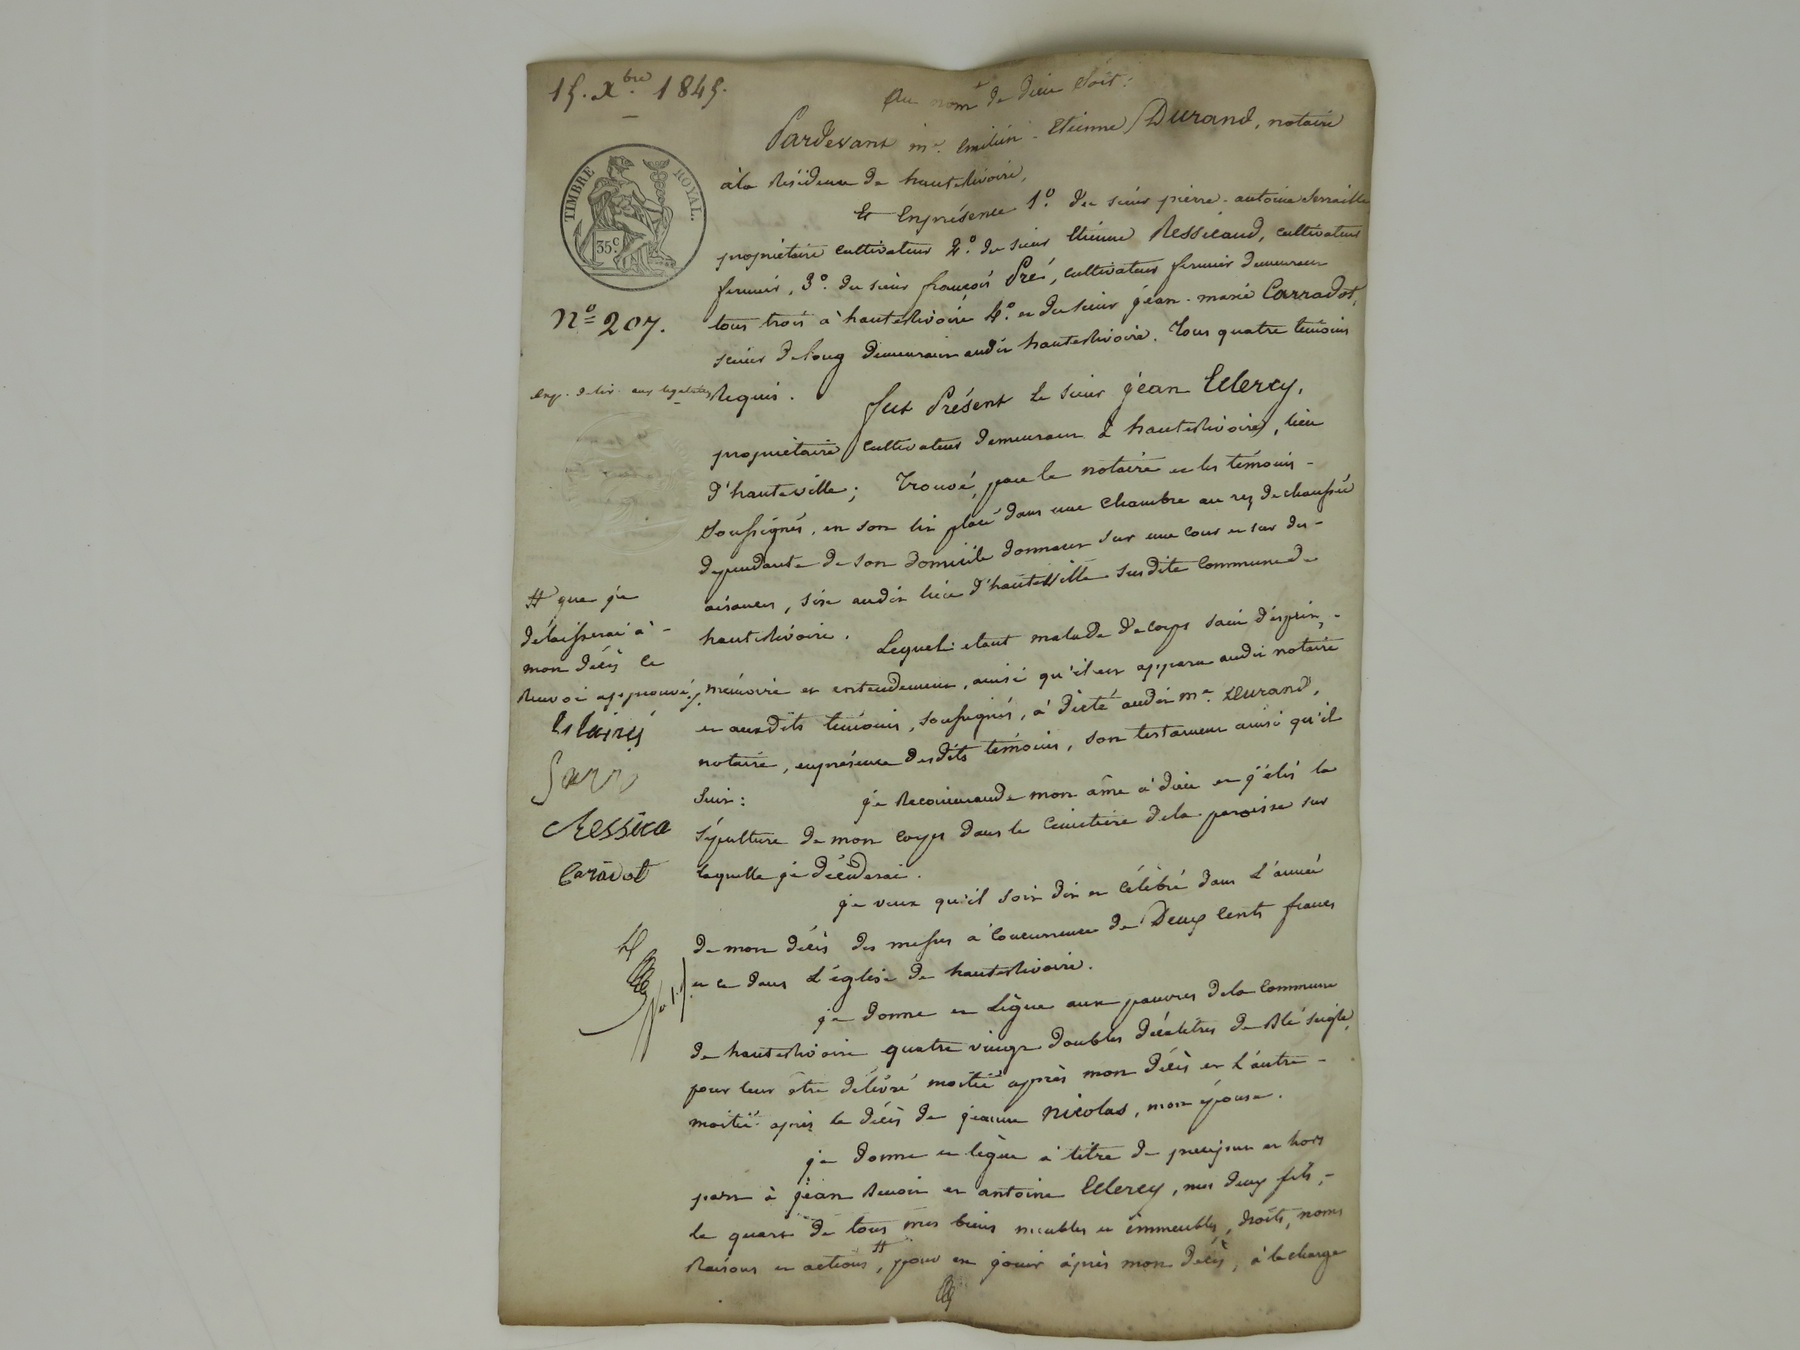 15. Xbre. 1845.
Au nom de dieu soit:
Pardevant me. émilien-Etienne Durand, notaire
à la Résidence de hauterivoire,
TIMBRE ROYAL.
35c
Et en présence 1o. du sieur pierre-antoine
propriétaire cultivateur 2o. du sieur Etienne Ressicaud, cultivateur
fermier, 3o. du sieur françois Pré, cultivateur fermier demeurant
No= 207.
tous trois à hauterivoire 4o. et du sieur jean-marie Carradot,
scieur de long demeurant audit hauterivoire. Tous quatre témoins
exp. deliv. aux legataires
Requis.
fut Présent le sieur jean Esclercy,
propriétaire cultivateur demeurant à hauterivoire, lieu
d'hauteville; Trouvé, par le notaire et les témoins-
soussignés, en son lit placé dans une chambre au rez de chaussée
dependante de son domicile donnant sur une cour et sur des-
aisances, sise audit lieu d'hauteville susdite commune de
hauterivoire.
Lequel étant malade de corps sain d'esprit,-
mémoire et entendement, ainsi qu'il est apparu audit notaire
et auxdits témoins, soussignés, à dicté audit me. Durand,
notaire, en présence desdits témoins, son testament ainsi qu'il
suit:
je Recommande mon âme à dieu et j'élis la
sépulture de mon corps dans le cimetière de la paroisse sur
laquelle je décéderai.
# que je
délaisserai à-
mon décès ce
Renvoi approuvé./.
Ressica
Caradot
je veux qu'il soit dit et célébré dans L'année
de mon décès des messes à concurrence de Deux cents francs
et ce dans L'église de hauterivoire.
je donne et Lègue aux pauvres de la commune
de hauterivoire quatre vingt doubles décalitres de Blé seigle,
pour leur être délivré moitié après mon décès et L'autre-
moitié après le décès de jeanne Nicolas, mon épouse.
je donne et lègue à titre de preciput et hors
part à jean Benoit et antoine Esclercy, mes deux fils,-
le quart de tous mes biens meubles et immeubles, droits, noms
Raisons et actions #, pour en jouir après mon décès, à la charge